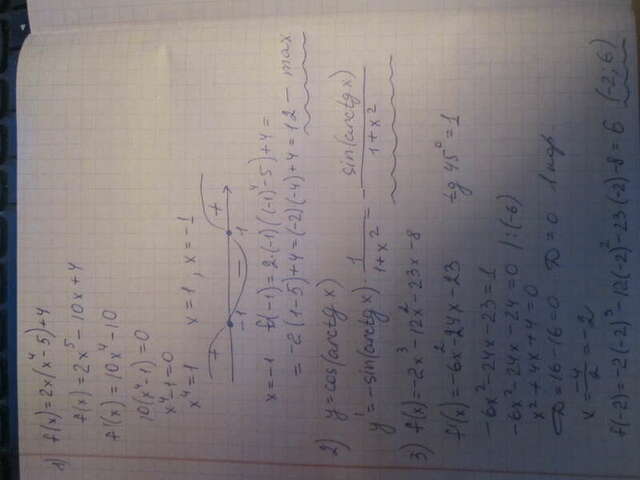 1) f(x) = 2x(x⁴ - 5) + 4
f(x) = 2x⁵ - 10x + 4
f'(x) = 10x⁴ - 10
10(x⁴ - 1) = 0
x⁴ - 1 = 0
x⁴ = 1 x = 1, x = -1
+ - +
-1 1
x = -1 f(-1) = 2·(-1)((-1)⁴ - 5) + 4 =
= -2(1 - 5) + 4 = (-2)(-4) + 4 = 12 - max
2) y = cos(arctg x)
y' = -sin(arctg x) · 1/(1+x²) = - sin(arctg x)/(1+x²)
3) f(x) = -2x³ - 12x² - 23x - 8
f'(x) = -6x² - 24x - 23 tg 45° = 1
-6x² - 24x - 23 = 1
-6x² - 24x - 24 = 0 /:(-6)
x² + 4x + 4 = 0
D = 16 - 16 = 0 D = 0 1 кор.
x = -4/2 = -2
f(-2) = -2(-2)³ - 12(-2)² - 23(-2) - 8 = 6 (-2; 6)